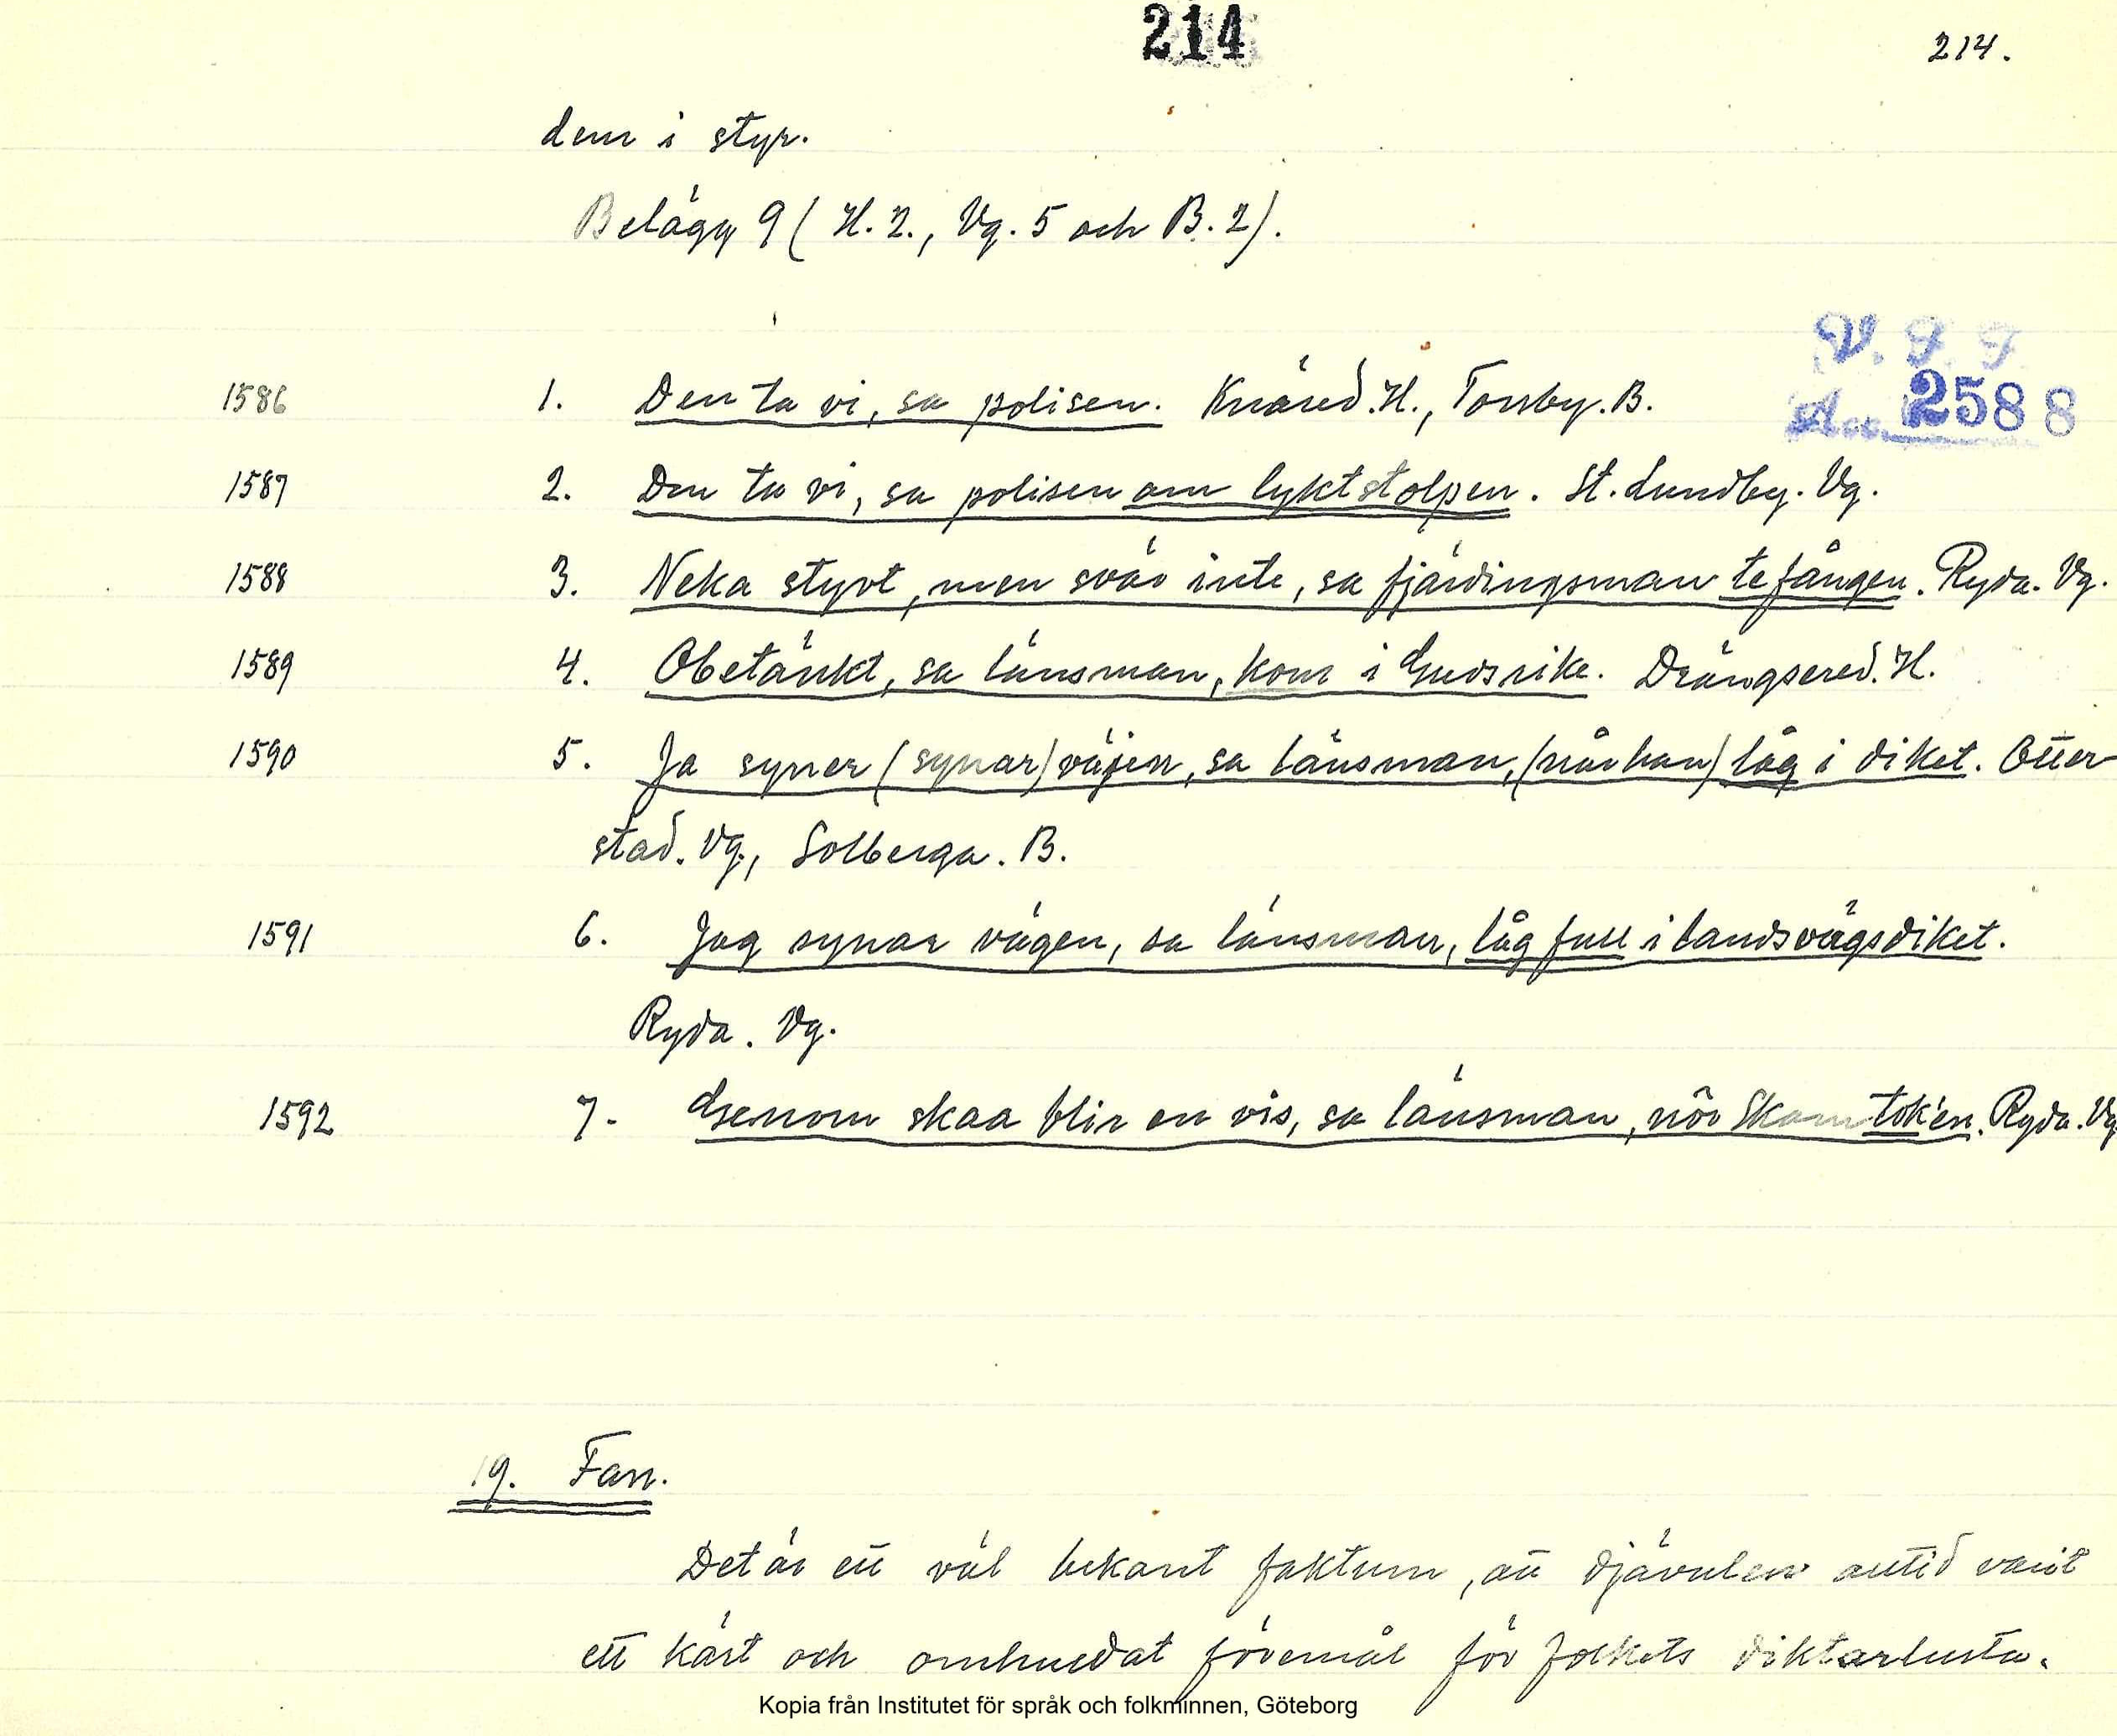 214
214.
dem i styr.
Belägg 9 (H. 2., Vg. 5 och B. 2).
V. F. F.
Acc. 2588
1586 1. Den ta vi, sa polisen. Knäred. H., Torsby. B.
1587 2. Den ta vi, sa polisen om lyktstolpen. St. Lundby. Vg.
1588 3. Neka styvt, men svär inte, sa fjärdingsman te fången. Ryda. Vg.
1589 4. Obetänkt, sa länsman, kom i Guds rike. Drängsered. H.
1590 5. Ja syner (synar) väjen, sa länsman, (når han) låg i diket. Otter-
stad. Vg., Solberga. B.
1591 6. Jag synar vägen, sa länsman, låg full i landsvägsdiket.
Ryda. Vg.
1592 7. Genom skaa blir en vis, sa länsman, nör Skam tok'en. Ryda. Vg.
19. Fan.
Det är ett väl bekant faktum, att djävulen alltid varit
ett kärt och omhuldat föremål för folkets diktarlusta.
Kopia från Institutet för språk och folkminnen, Göteborg